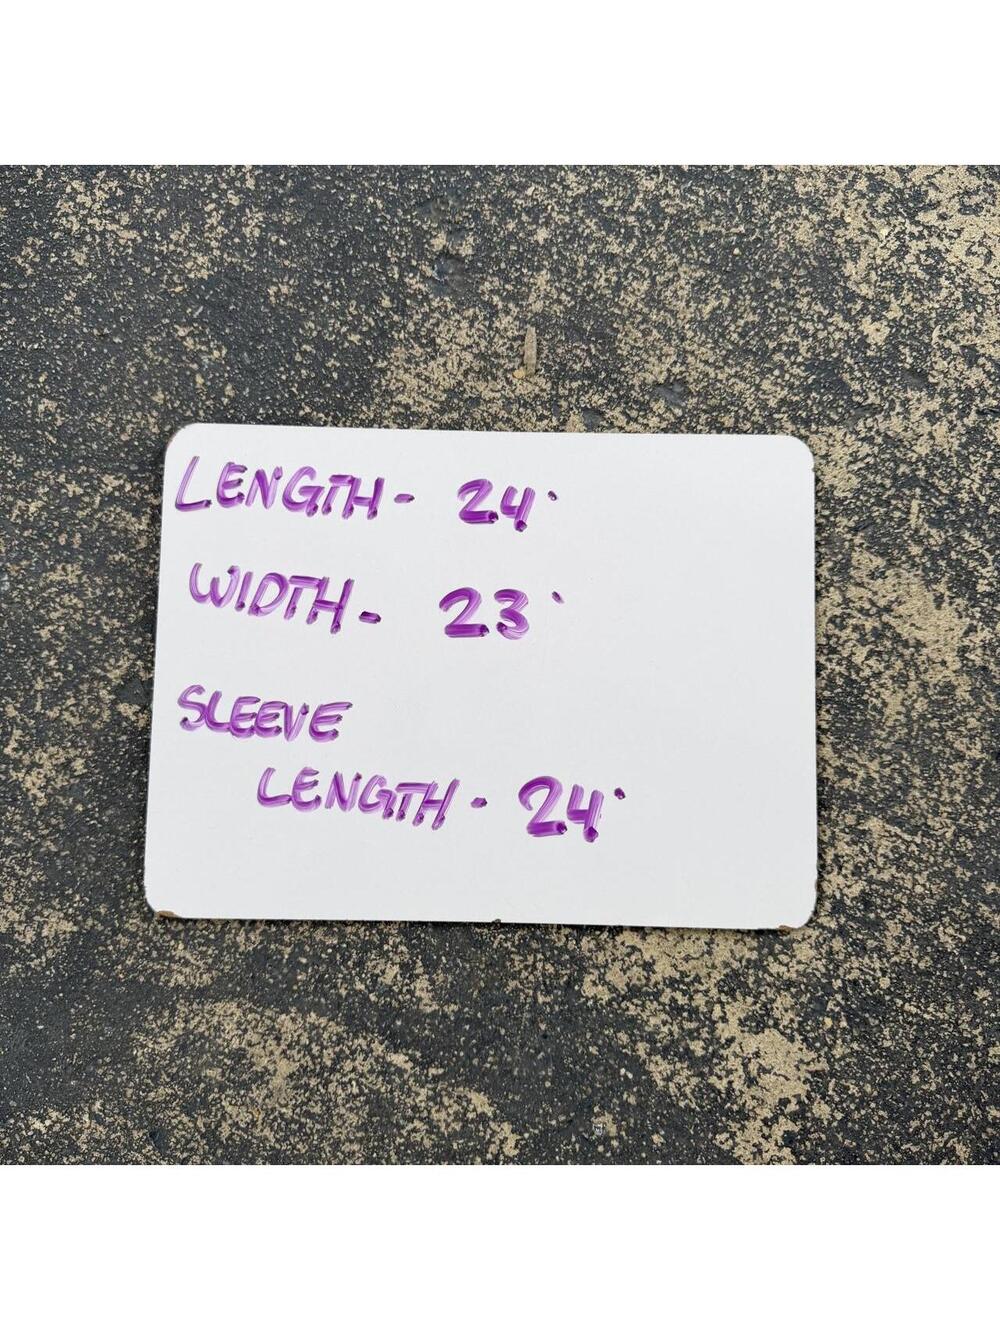 LENGTH - 24'
WIDTH - 23'
SLEEVE
LENGTH - 24'